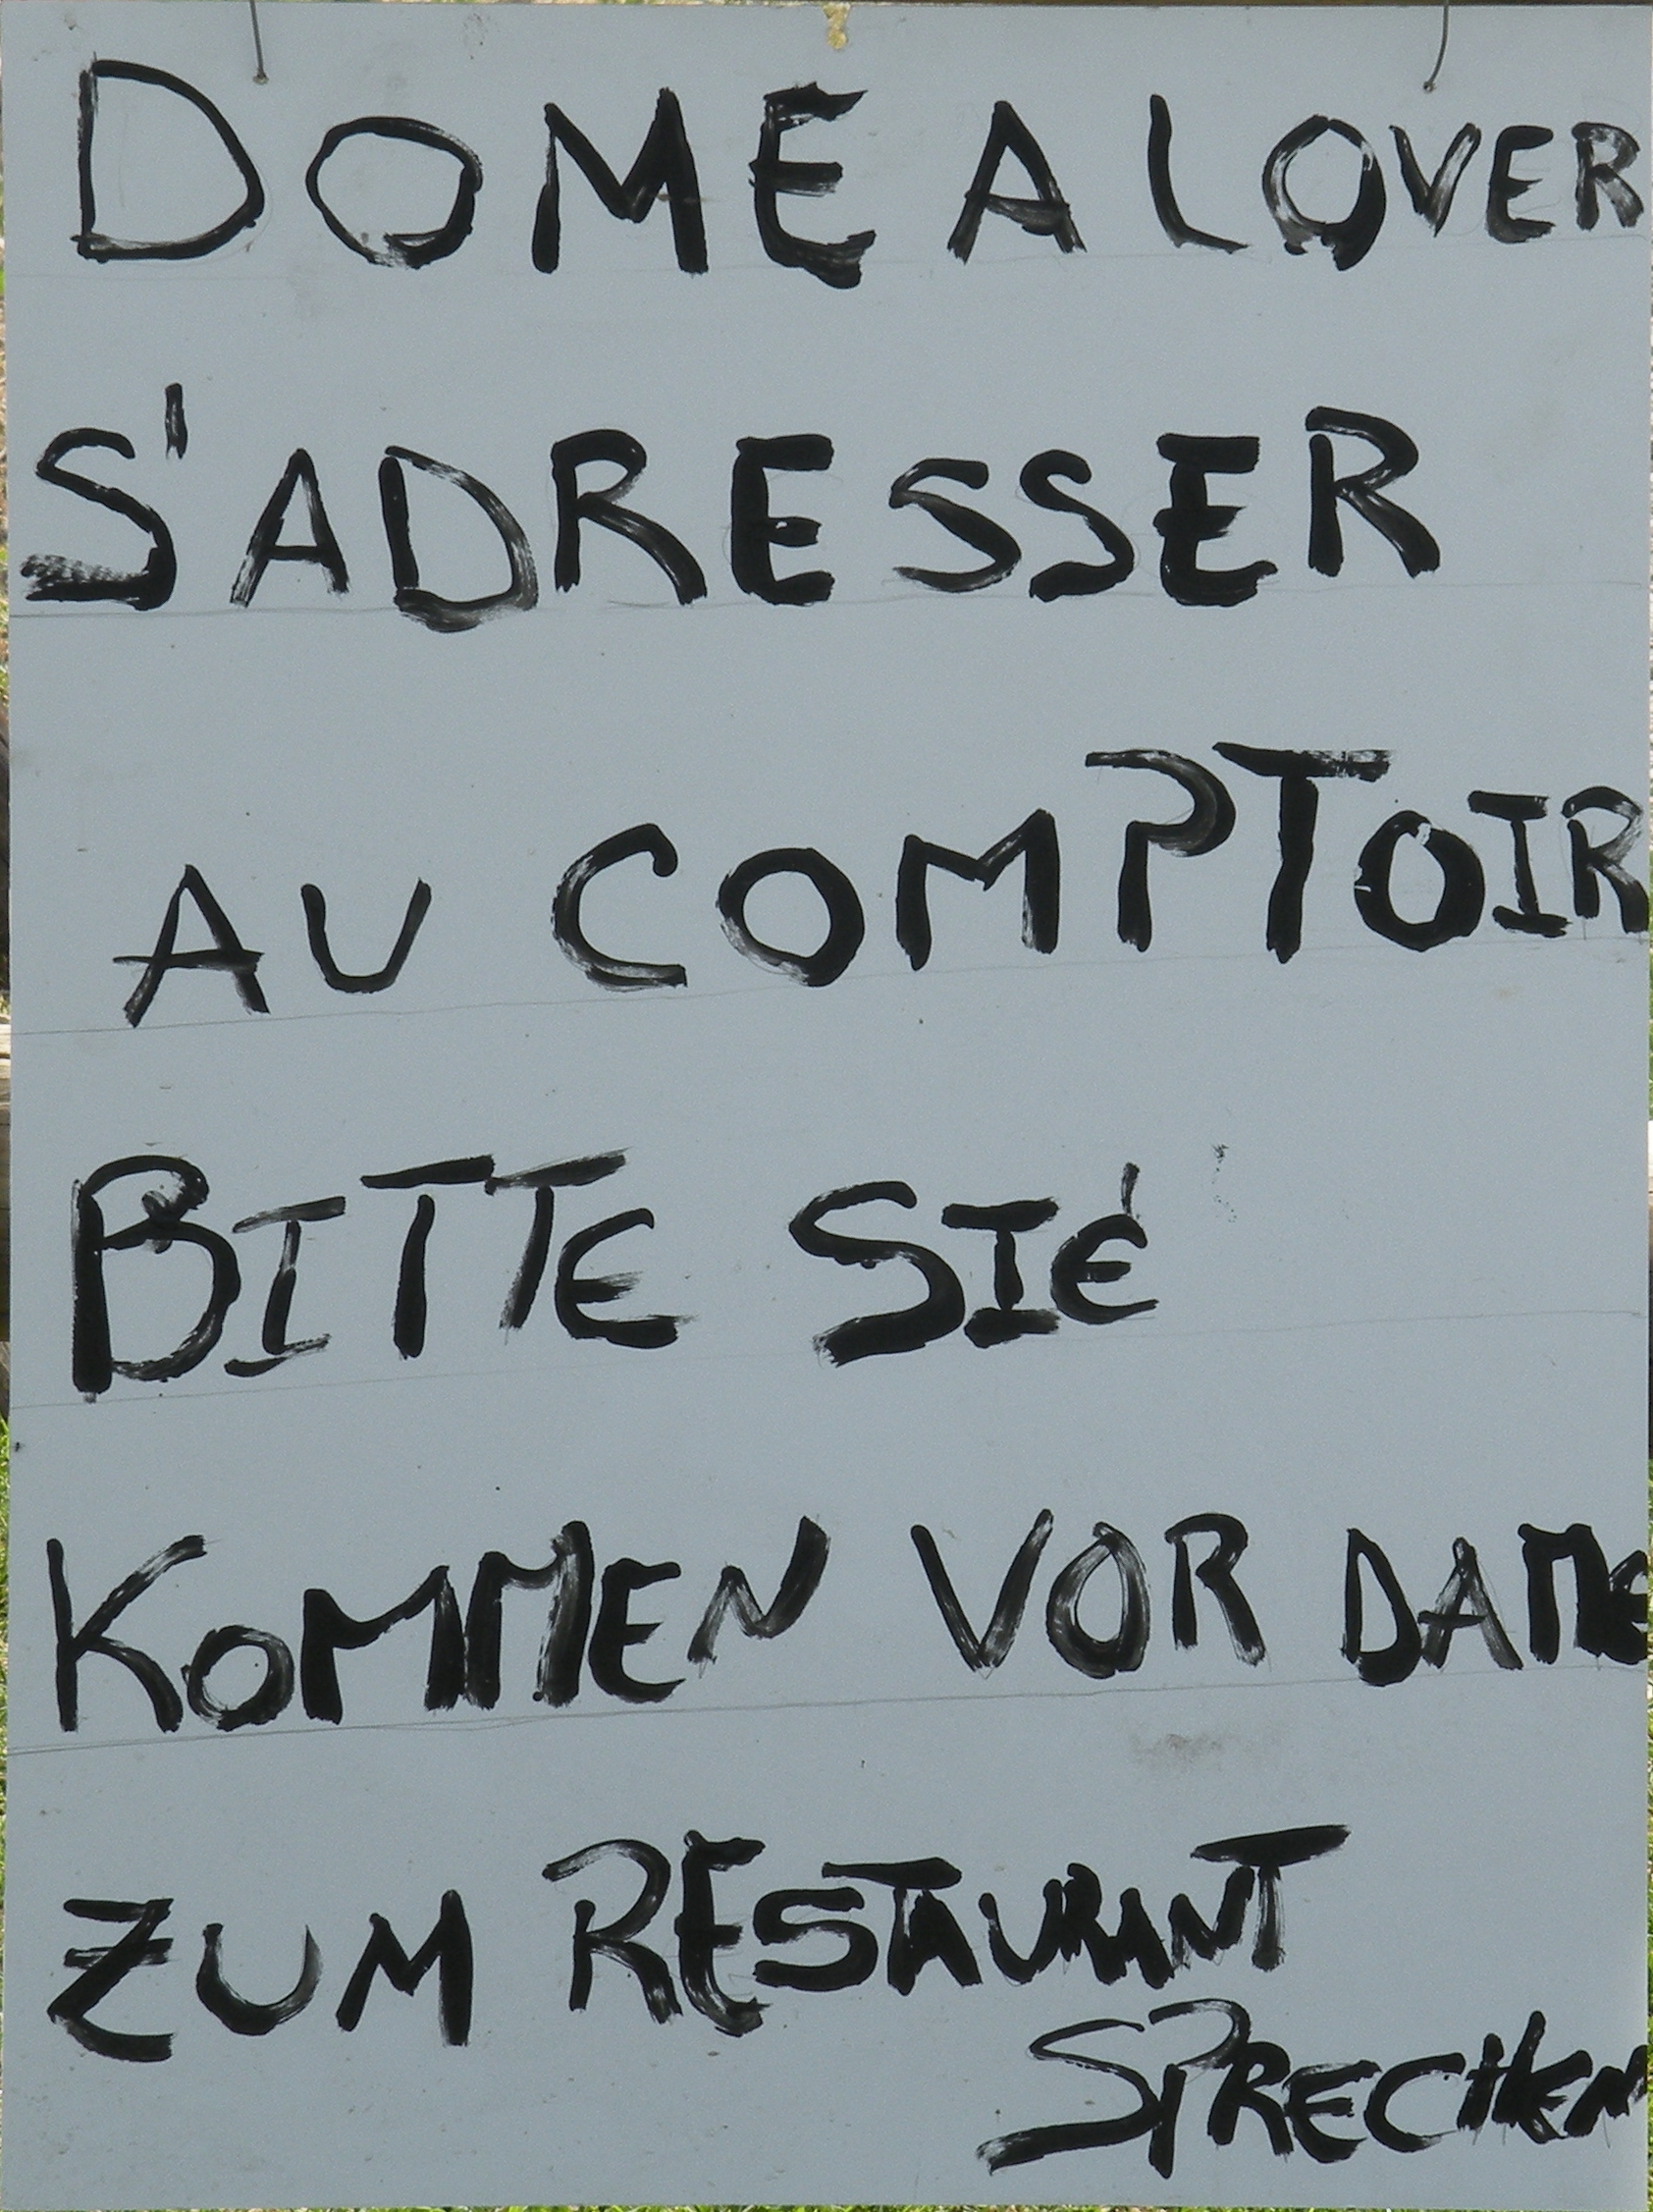 DOME A LOVER
S'ADRESSER
AU COMPTOIR
BITTE SIÉ
KOMMEN VOR DAME
ZUM RESTAURANT
SPRECHEN